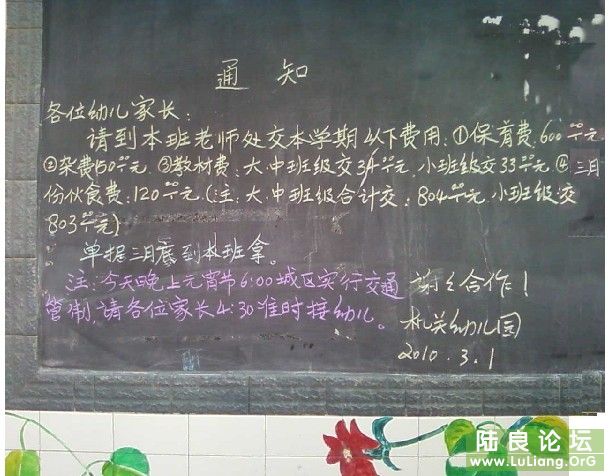 通知
各位幼儿家长:
请到本班老师处交本学期以下费用:①保育费:600⁰⁰元
②杂费50⁰⁰元 ③教材费:大.中班级交34⁰⁰元,小班级交33⁰⁰元 ④三月
份伙食费:120⁰⁰元(注:大.中班级合计交:804⁰⁰元,小班级交
803⁰⁰元)
单据三月底到本班拿。
注:今天晚上元宵节6:00城区实行交通
管制,请各位家长4:30准时接幼儿。
谢々合作!
机关幼儿园
2010.3.1
陆良论坛
www.LuLiang.OrG